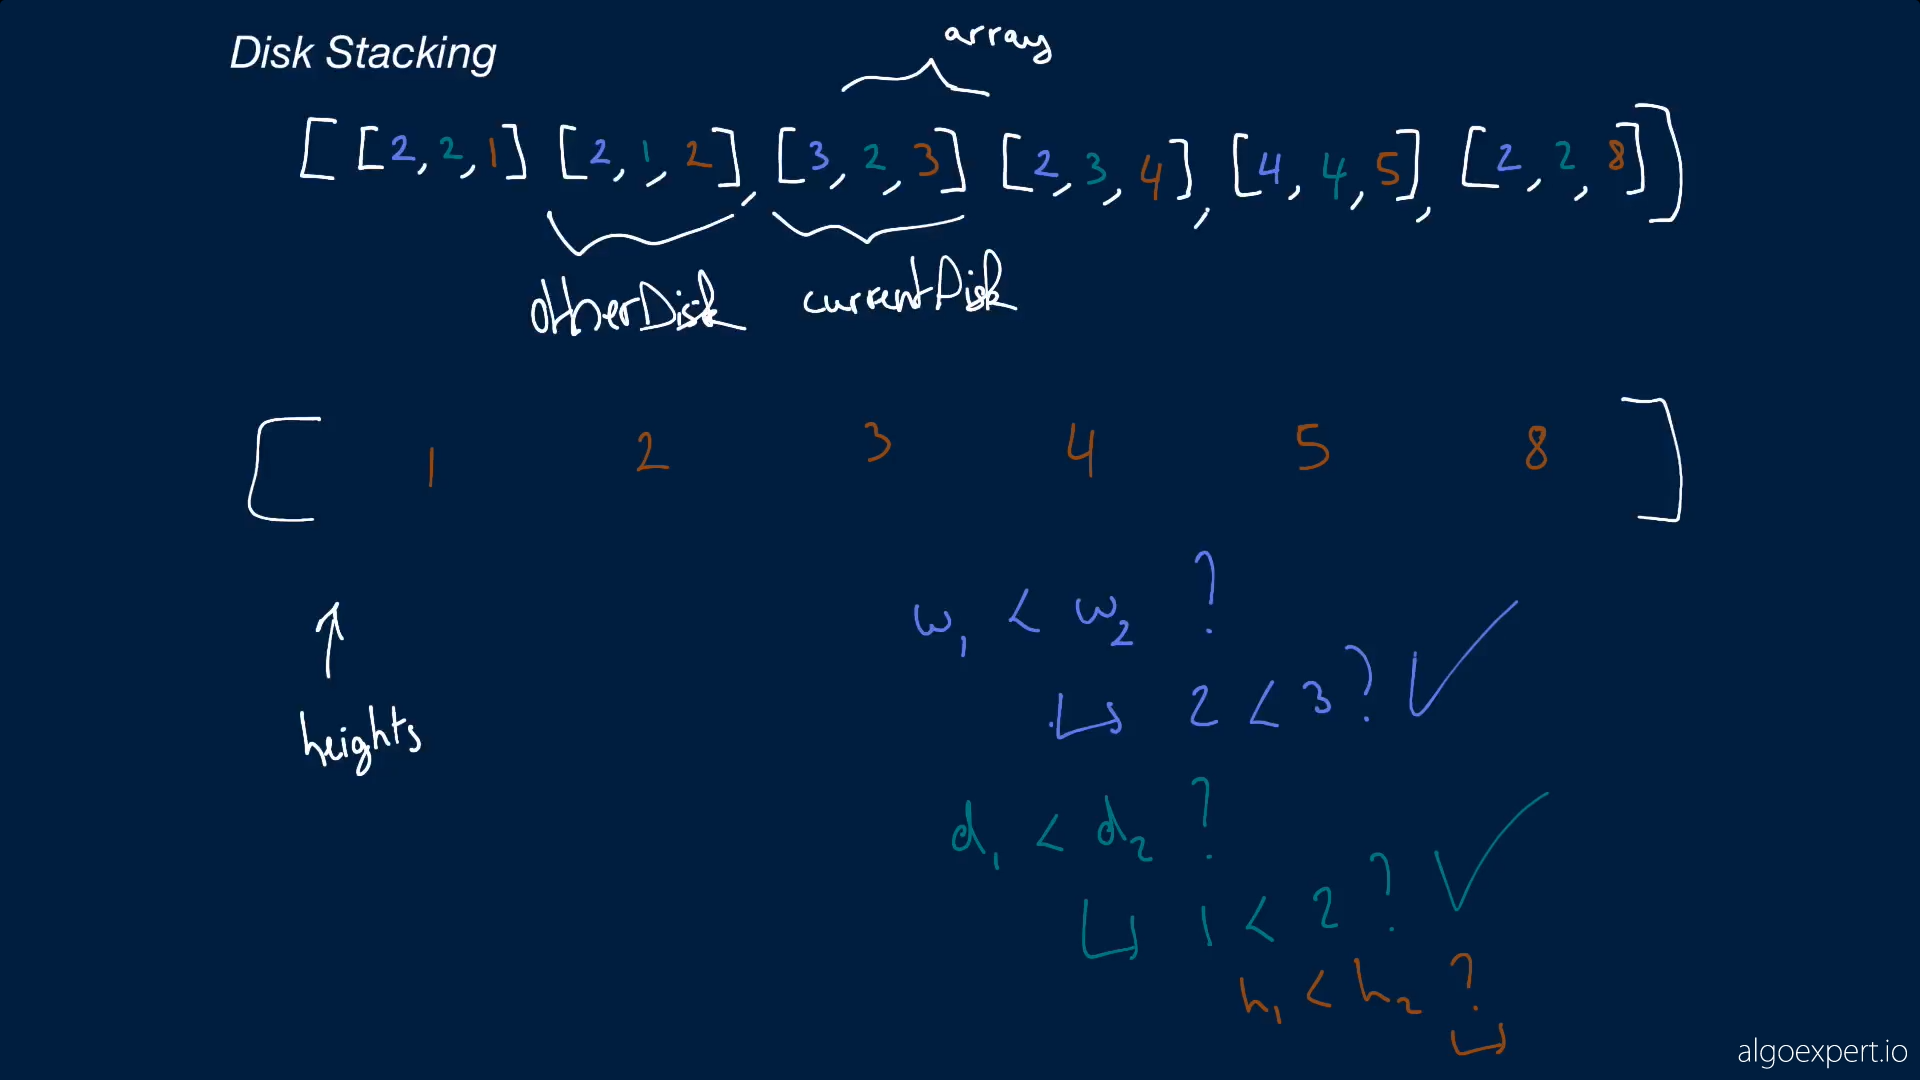 Disk Stacking
array
[ [2, 2, 1] [2, 1, 2], [3, 2, 3] [2, 3, 4], [4, 4, 5], [2, 2, 8] ]
otherDisk currentDisk
[ 1 2 3 4 5 8 ]
↑
heights
w₁ < w₂ ?
↳ 2 < 3 ? ✓
d₁ < d₂ ?
↳ 1 < 2 ? ✓
h₁ < h₂ ?
↳
algoexpert.io